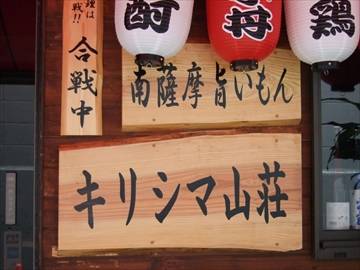 理は
戦!!
合戦中
酎
母
鶏
南薩摩旨いもん
キリシマ山荘